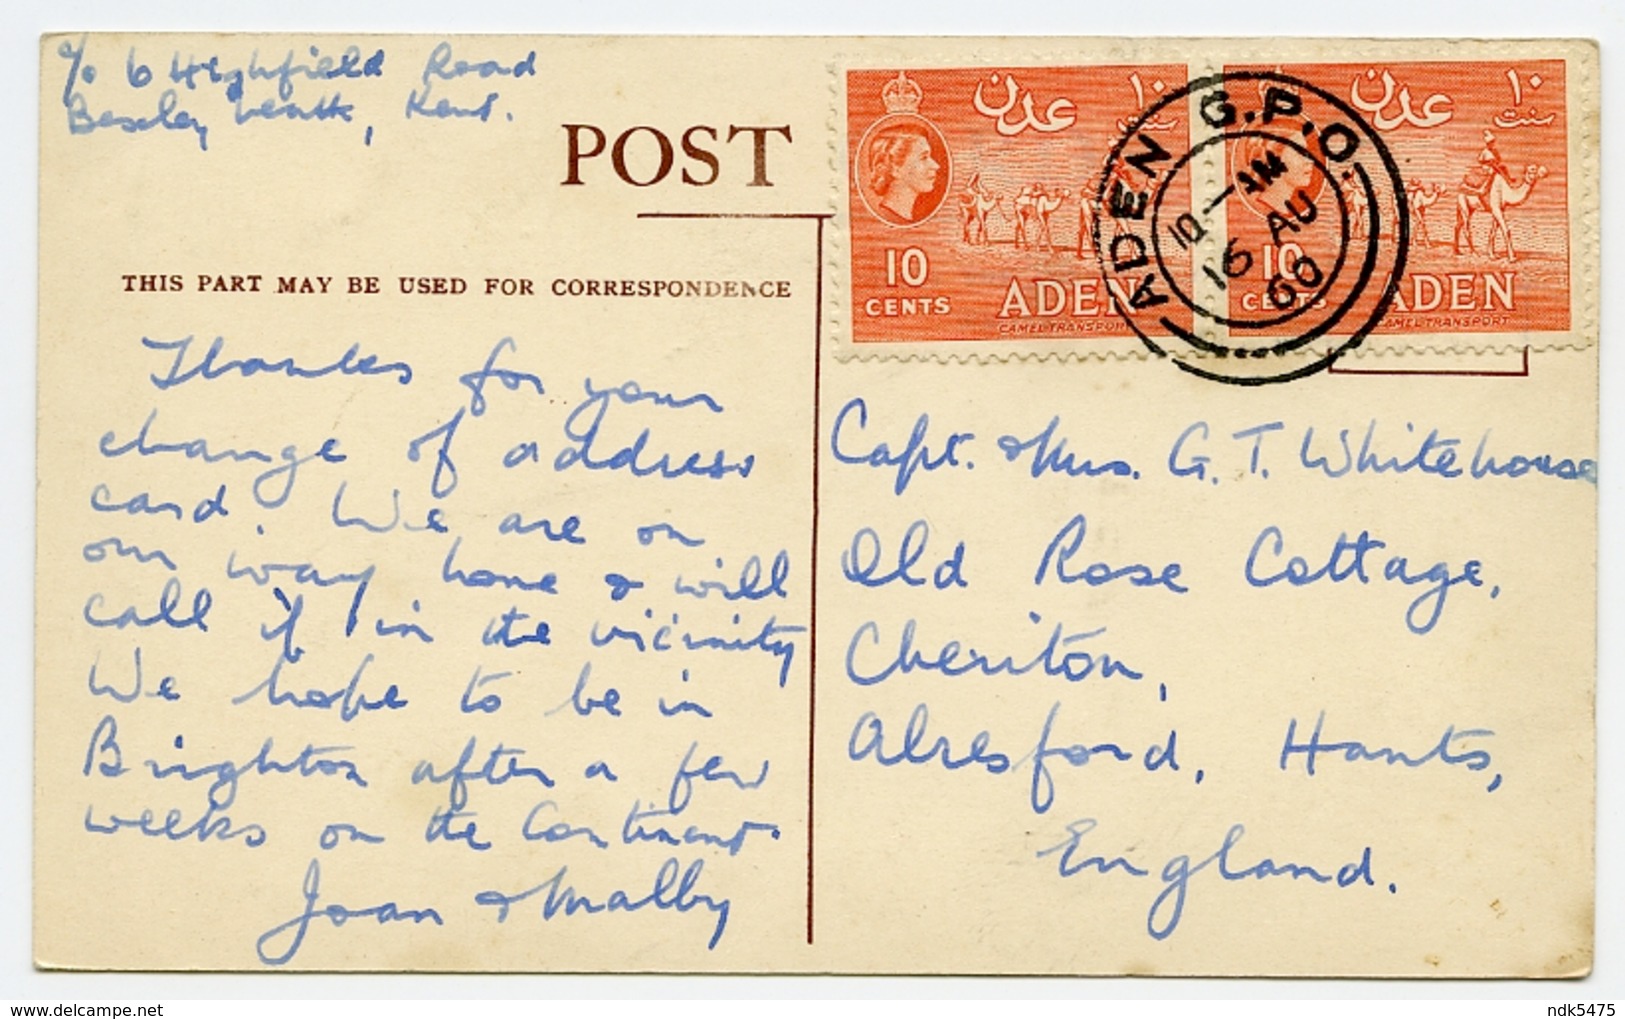 c/o 6 Highfield Road
Bexley Heath, Kent.
POST
THIS PART MAY BE USED FOR CORRESPONDENCE
Thanks for your
change of address
card. We are on
our way home & will
call if in the vicinity
We hope to be in
Brighton after a few
weeks on the Continent.
Joan & Malby
عدن ١٠
سنت
10
CENTS
ADEN
CAMEL TRANSPORT
عدن ١٠
سنت
10
CENTS
ADEN
CAMEL TRANSPORT
ADEN G.P.O.
10-AM
16 AU
60
Capt. & Mrs. G. T. Whitehouse
Old Rose Cottage,
Cheriton,
Alresford, Hants,
England.
delcampe.net
ndk5475